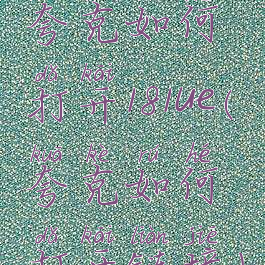 夸克如何
dǎ kāi
打开181ue(
kuā kè rú hé
夸克如何
dǎ kāi liàn jiē
打开链接(